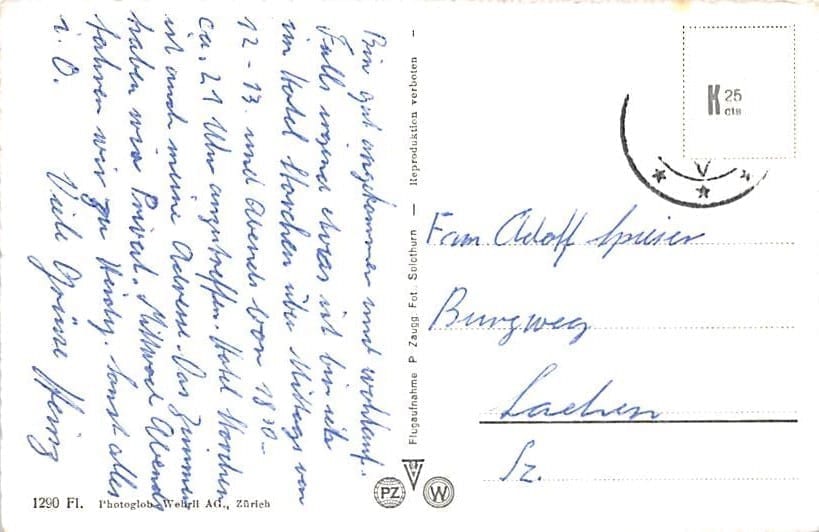 Bin gut angekommen und wohlauf.
Falls irgend etwas ist bin ich
im Hotel Storchen über Mittags von
12 - 13. und Abends von 18 30 -
ca. 21 Uhr anzutreffen. Hotel Storchen
ist auch meine Adresse. Das Zimmer
haben wir Privat. Mittwoch Abend
fahren wir zu Sonst alles
i. O. Viele Grüsse Heinz
Reproduktion verboten
Flugaufnahme P. Zaugg Fot., Solothurn
K 25
cts
V
Frau Adolf Spieser
Burgweg
Lachen
Sz.
PZ W
1290 Fl. Photoglob-Wehrli AG., Zürich